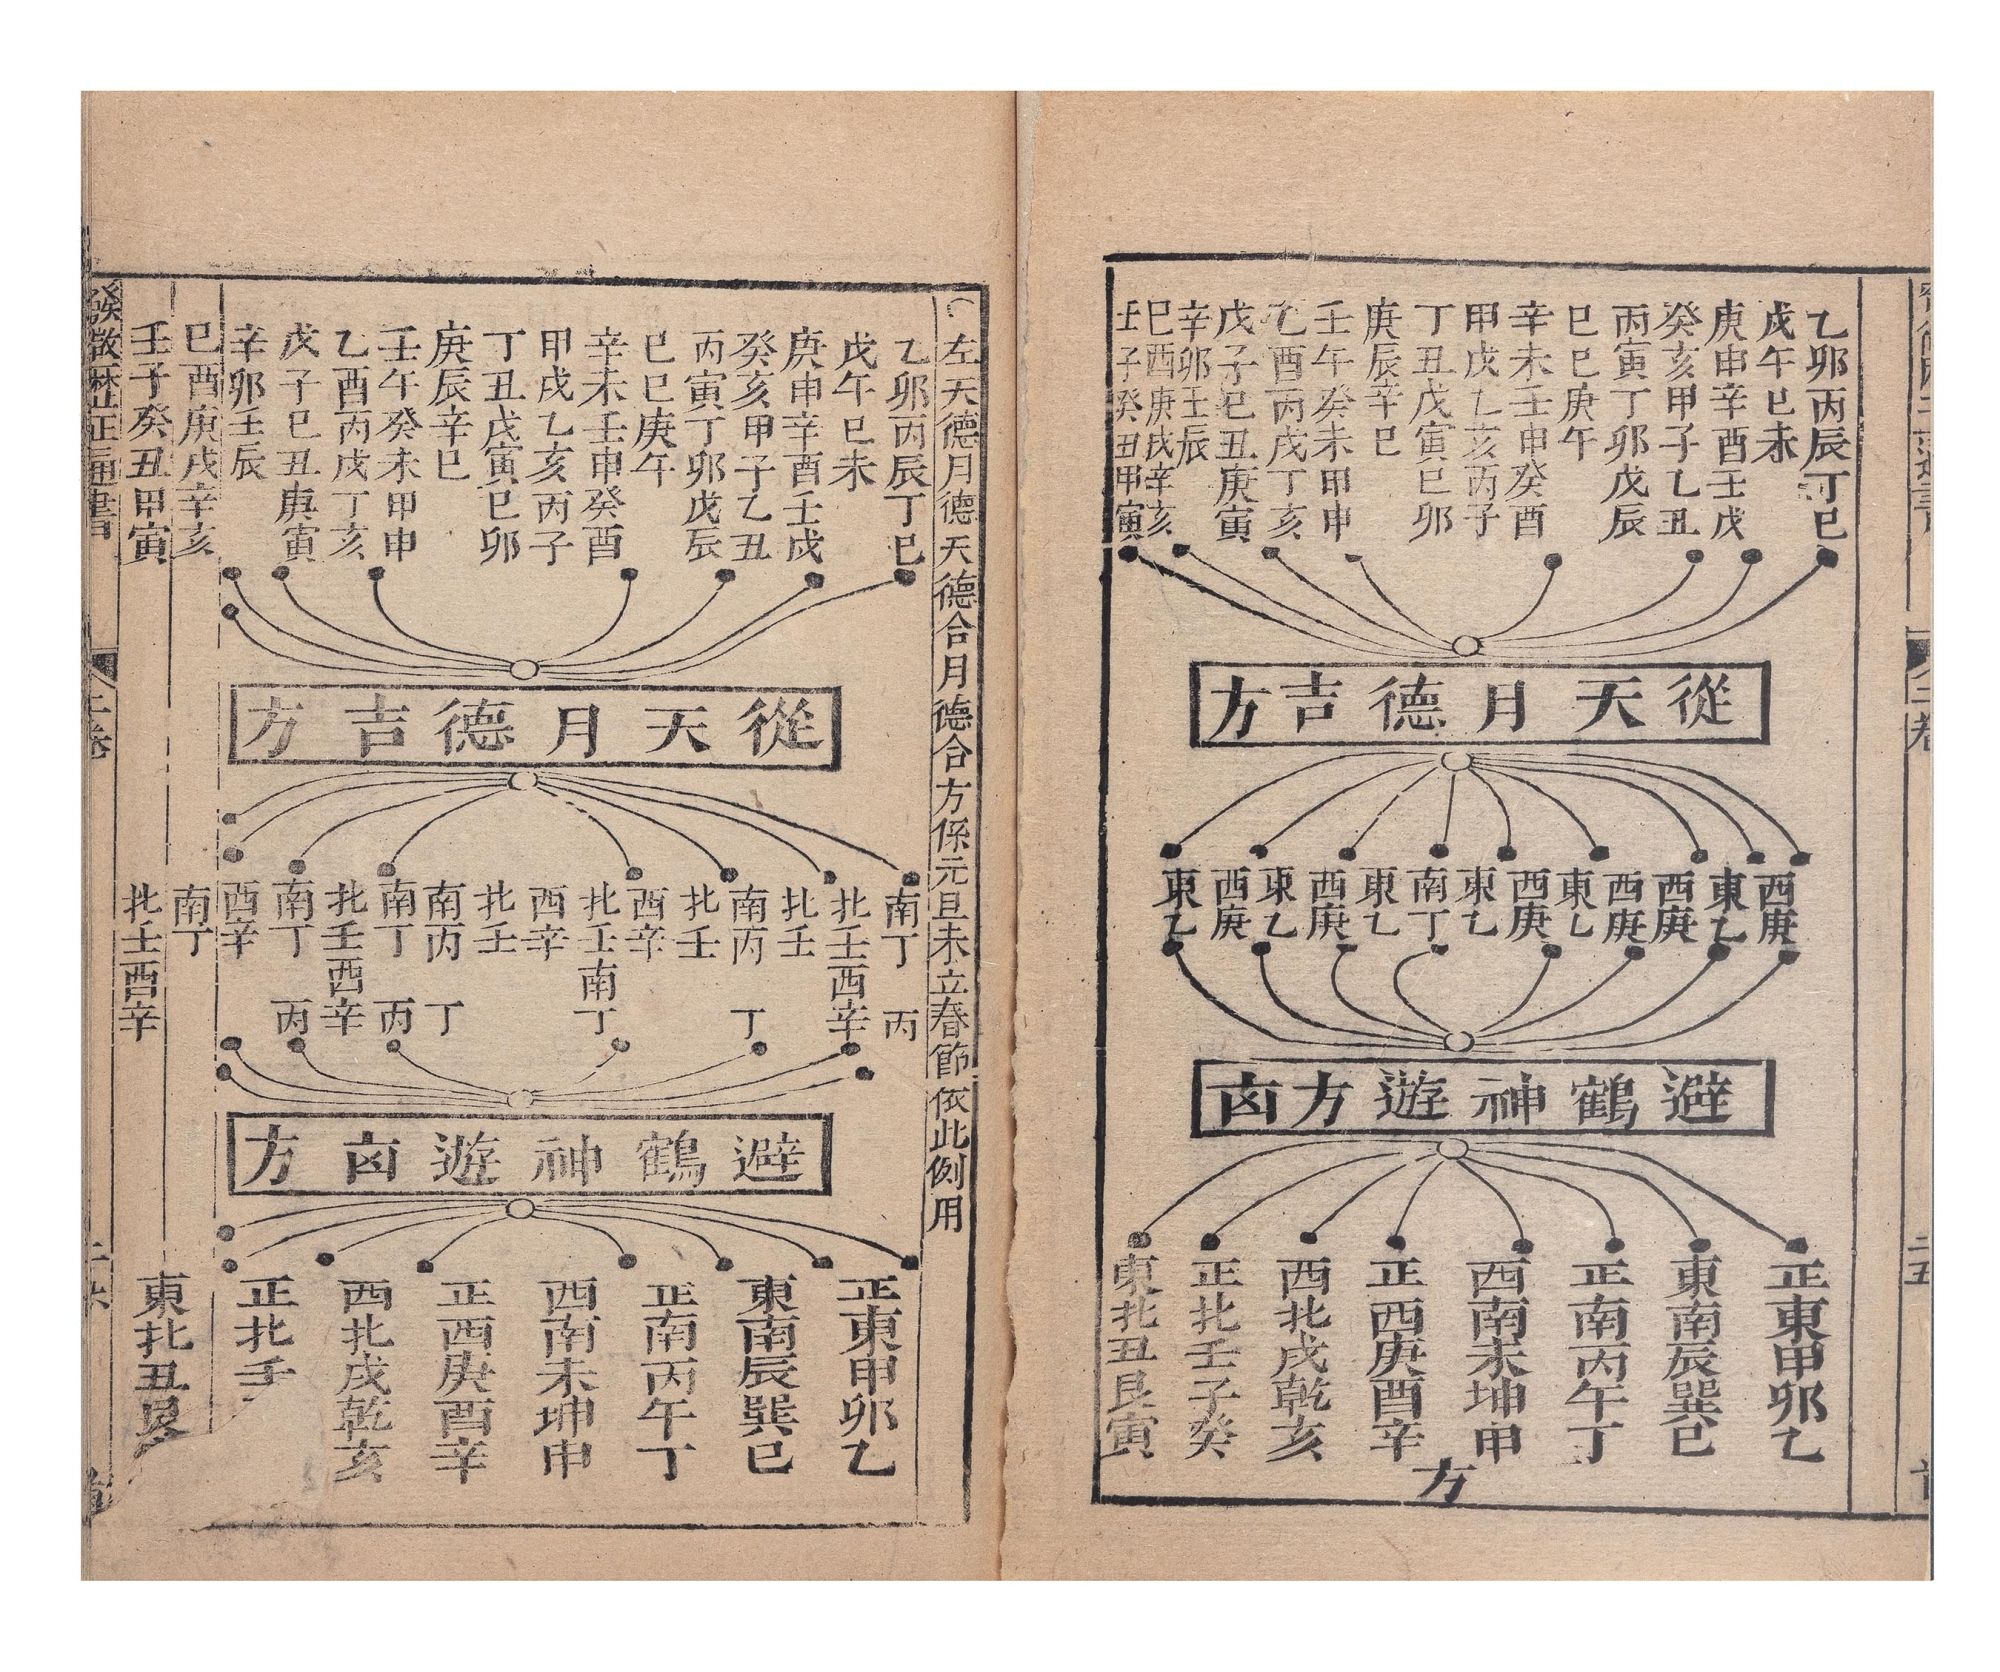 乙卯丙辰丁巳
戊午巳未
庚申辛酉壬戌
癸亥甲子乙丑
丙寅丁卯戊辰
巳巳庚午
辛未壬申癸酉
甲戌乙亥丙子
丁丑戊寅巳卯
庚辰辛巳
壬午癸未甲申
乙酉丙戌丁亥
戊子巳丑庚寅
辛卯壬辰
巳酉庚戌辛亥
壬子癸丑甲寅
從天月德吉方
西庚
東乙
西庚
西庚
東乙
西庚
東乙
南丁
東乙
西庚
東乙
西庚
東乙
避鶴神遊方凶
正東甲卯乙
東南辰巽巳
正南丙午丁
西南未坤申
正西庚酉辛
西北戌乾亥
正北壬子癸
東北丑艮寅
方
二卷
二五
左天德月德天德合月德合方係元旦未立春節依此例用
乙卯丙辰丁巳
戊午巳未
庚申辛酉壬戌
癸亥甲子乙丑
丙寅丁卯戊辰
巳巳庚午
辛未壬申癸酉
甲戌乙亥丙子
丁丑戊寅巳卯
庚辰辛巳
壬午癸未甲申
乙酉丙戌丁亥
戊子巳丑庚寅
辛卯壬辰
巳酉庚戌辛亥
壬子癸丑甲寅
從天月德吉方
南丁 丙
北壬酉辛
北壬
南丙 丁
北壬
酉辛
北壬南丁
酉辛
北壬
南丙 丁
南丁 丙
北壬酉辛
南丁 丙
酉辛
南丁
北壬酉辛
避鶴神遊凶方
正東甲卯乙
東南辰巽巳
正南丙午丁
西南未坤申
正西庚酉辛
西北戌乾亥
正北壬子
東北丑艮
正通書
二卷
二六